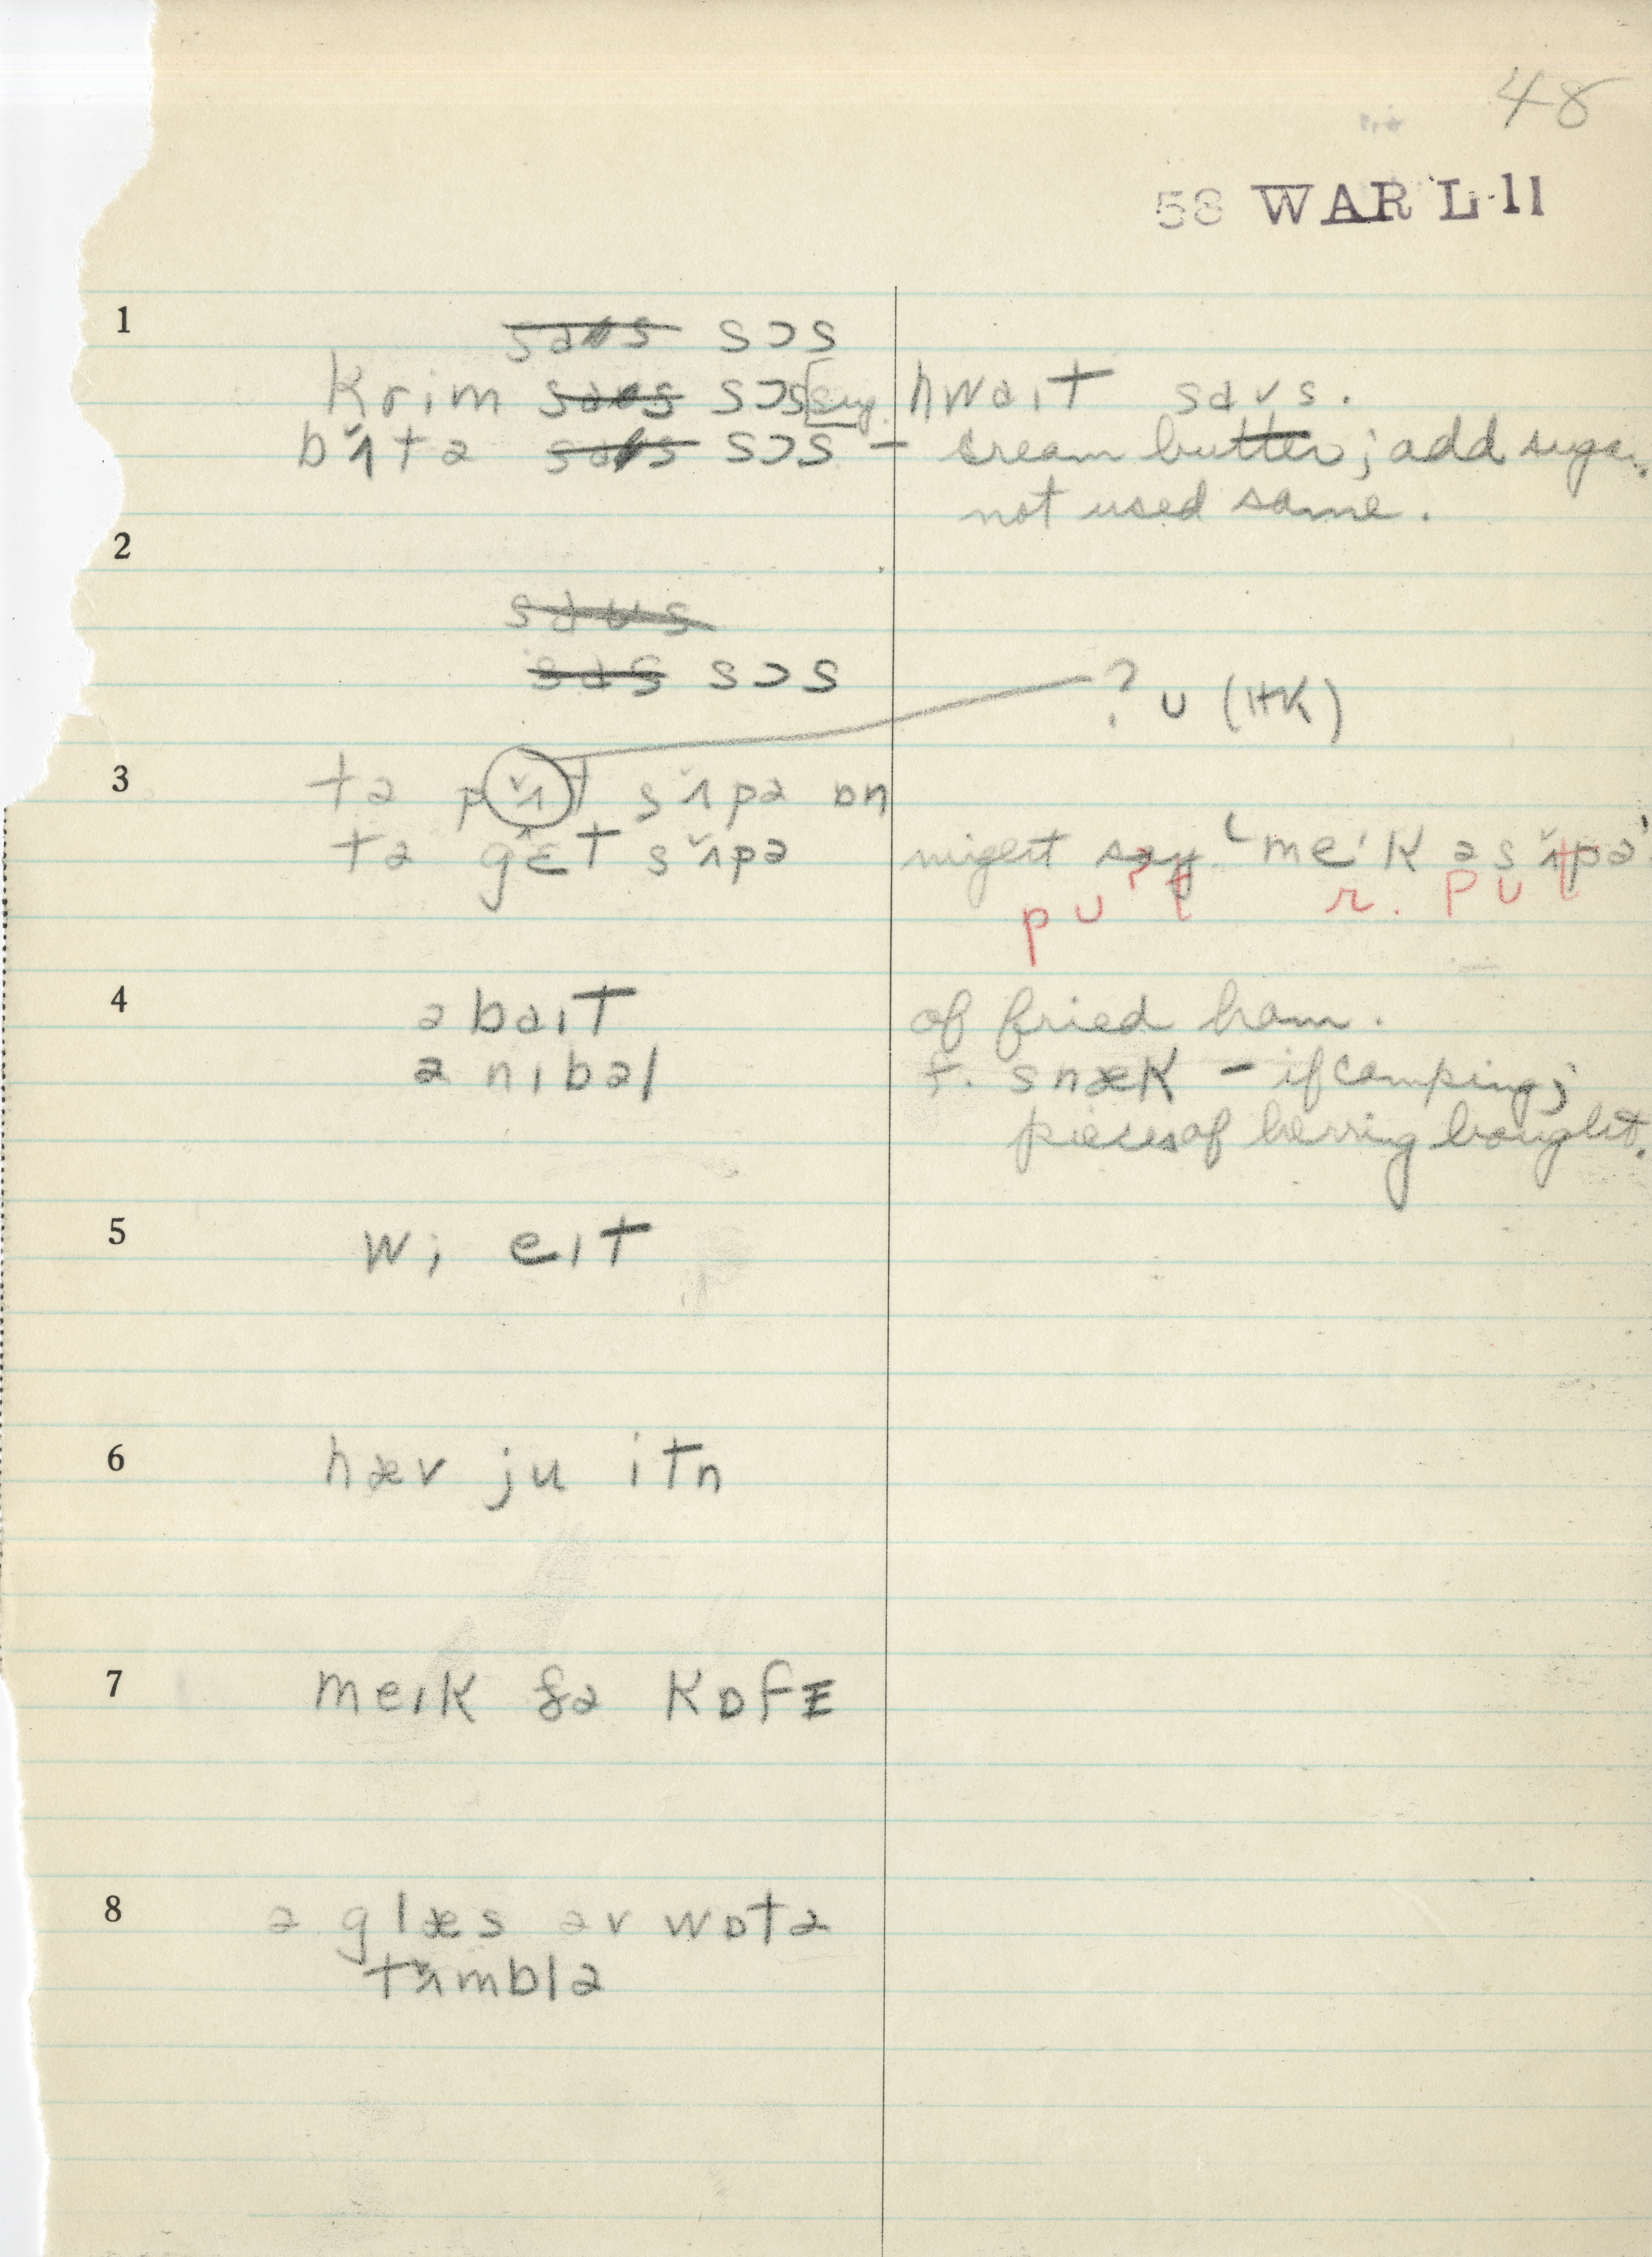 48
58 WAR L 11
1
~~saʊs~~ sɔs
krim ~~saʊs~~ sɔs [say hwaɪt saʊs.
bʌ̌tə ~~saʊs~~ sɔs – cream butter; add sugar.
not used same.
2
~~saʊs~~
~~sas~~ sɔs
? ʊ (HK)
3 tə pʌ̌t sʌ̌pə ɒn
tə gɛ̂t sʌ̌pə might say 'meɪk ə sʌ̌pə'
pʊt r. pʊt
4 ə baɪt of fried ham.
ə nɪbəl f. snæk – if camping;
pieces of herring bought.
5 wi eɪt
6 hæv ju itn
7 meɪk ðə kɒfɪ
8 ə glæs əv wɒtə
tʌ̌mblə